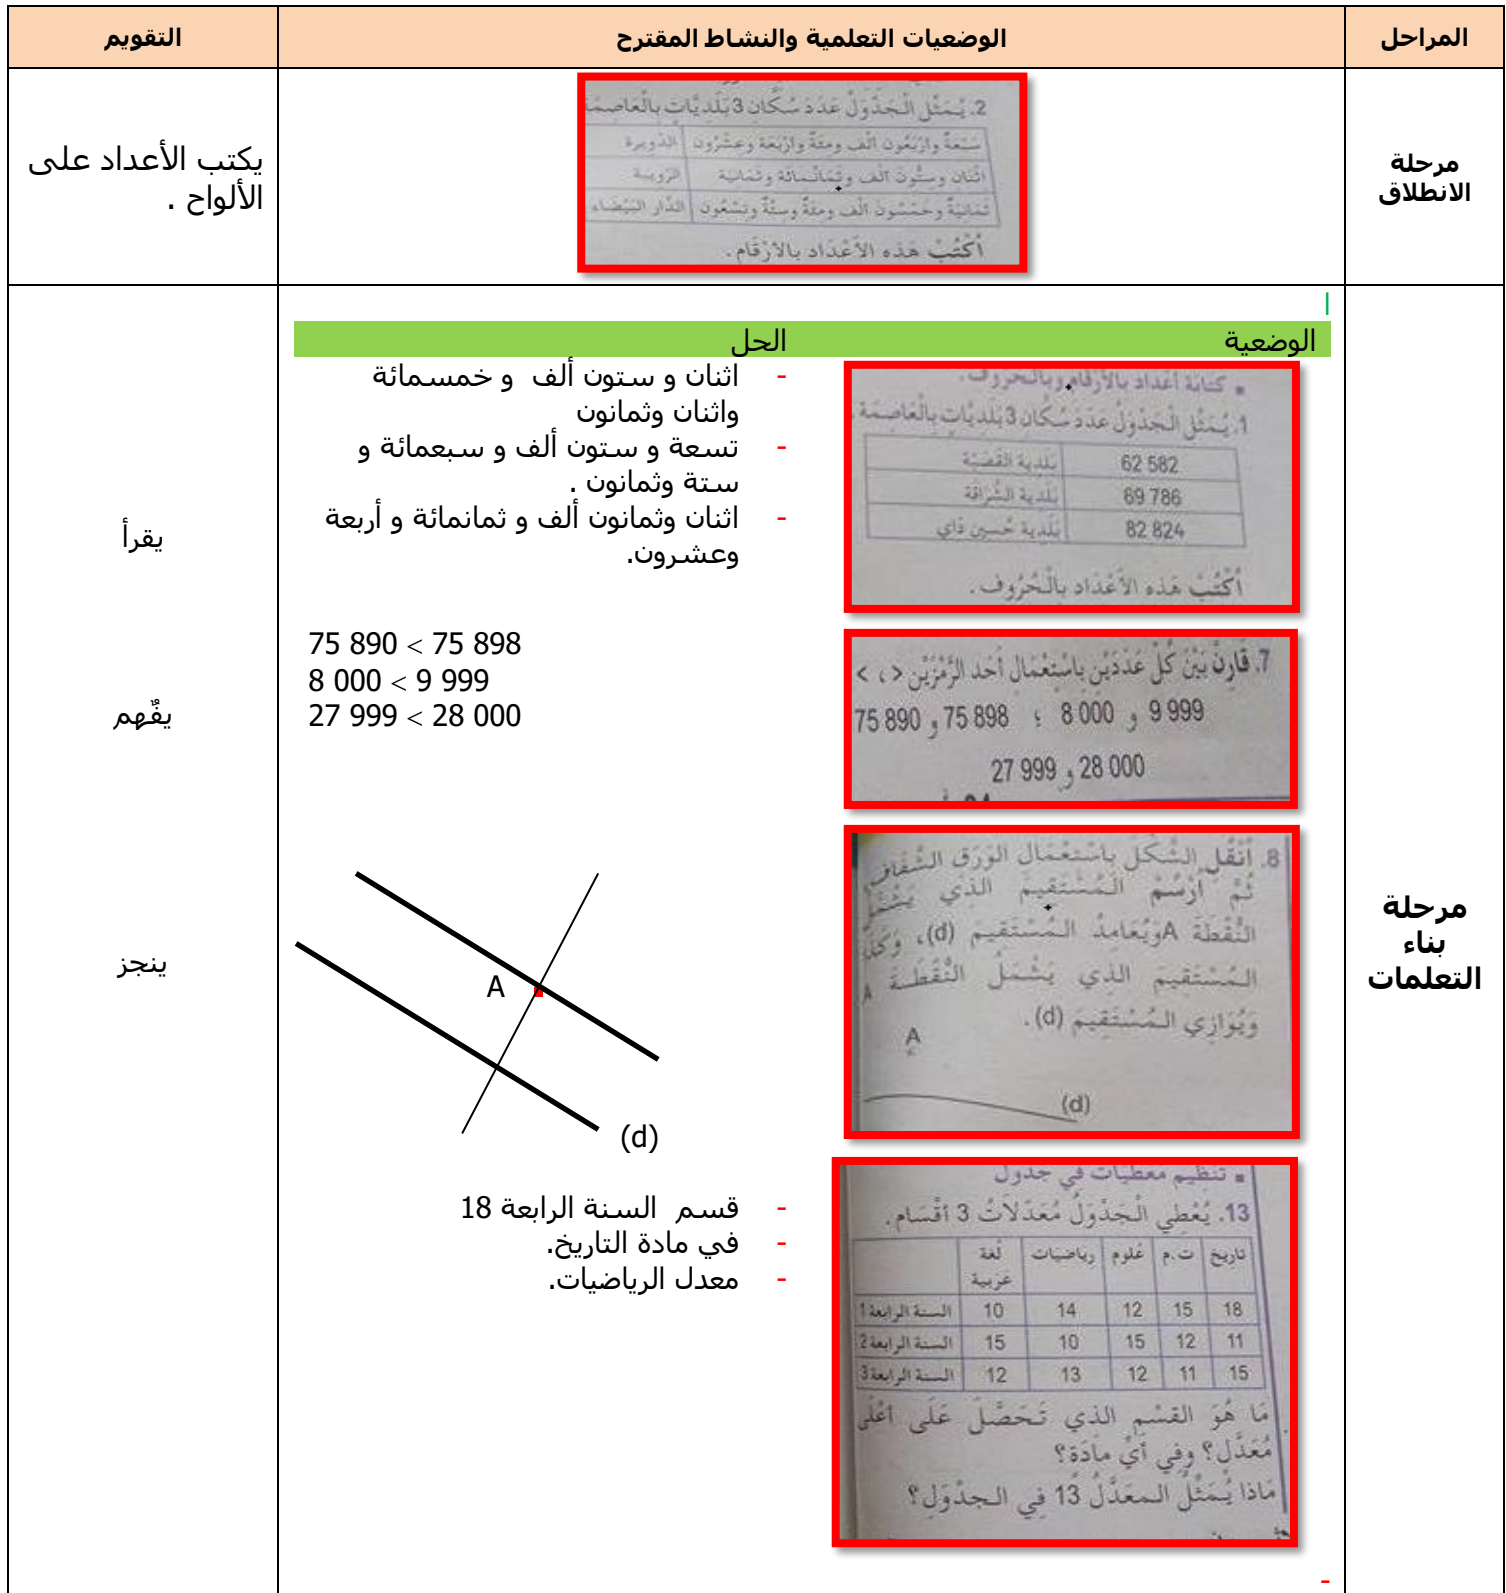 المراحل
الوضعيات التعلمية والنشاط المقترح
التقويم
مرحلة
الانطلاق
2. يُمَثِّل الْجَدْوَلُ عَدَدَ سُكَّان 3 بَلَدِيَّاتٍ بِالْعَاصِمَة
سَبْعَةٌ وَأرْبَعُون ألْف ومِئَةٌ وأرْبَعَة وعشْرُون الدّويرة
اثْنَان وستُّون ألْف وثَمَانْمائَة وثَمَانيَة الرّويبة
ثَمَانيَةٌ وخَمْسُون ألْف ومئَةٌ وستَّةٌ وتِسْعُون الدَّار البَيْضَاء
أُكْتُبْ هَذه الأعْدَاد بالأرْقَام .
يكتب الأعداد على
الألواح .
مرحلة
بناء
التعلمات
ا
الوضعية الحل
▪ كتَابَة أعْدَاد بالأرْقام وبالْحُرُوف.
1. يُمَثِّل الْجَدْوَلُ عَدَدَ سُكَّان 3 بَلَدِيَّاتٍ بِالْعَاصِمَة .
بَلَدِية القَصَبَة 62 582
بَلَدِية الشَّرَاقَة 69 786
بَلَدِية حُسين دَاي 82 824
أُكْتُبْ هَذه الأعْدَاد بالْحُرُوف .
- اثنان و ستون ألف و خمسمائة
واثنان وثمانون
- تسعة و ستون ألف و سبعمائة و
ستة وثمانون .
- اثنان وثمانون ألف و ثمانمائة و أربعة
وعشرون.
يقرأ
7. قَارِنْ بَيْنَ كُلّ عَدَدَيْن بِاسْتِعْمَالِ أحَد الرَّمْزَيْن < ، >
9 999 و 8 000 ؛ 75 898 و 75 890
28 000 و 27 999
75 890 < 75 898
8 000 < 9 999
27 999 < 28 000
يفٌهم
8. أُنْقُل الشَّكْلَ باسْتعْمَال الوَرَق الشَّفَاف
ثُمَّ أرْسُمْ الْمُسْتَقِيمَ الذي يَشْمَلُ
النُّقْطَةَ A ويُعَامِدُ الْمُسْتَقِيم (d)، وَكَذَا
الْمُسْتَقِيمَ الذي يَشْمَلُ النُّقْطَة A
وَيُوَازِي الْمُسْتَقِيمَ (d) .
A
(d)
A
(d)
ينجز
▪ تَنْظيم مُعْطيَات في جَدْول
13. يُعْطِي الْجَدْوَلُ مُعَدّلَاتُ 3 أقْسَام.
لُغَة عَرَبية رياضيات عُلوم ت.م تاريخ
السنة الرابعة 1 10 14 12 15 18
السنة الرابعة 2 15 10 15 12 11
السنة الرابعة 3 12 13 12 11 15
مَا هُوَ القسْم الذي تَحَصَّلَ عَلَى أعْلَى
مُعَدَّل؟ وفِي أيِّ مادَة؟
مَاذا يُمَثِّلُ المعَدَّلُ 13 فِي الجدْوَل؟
- قسم السنة الرابعة 18
- في مادة التاريخ.
- معدل الرياضيات.
-